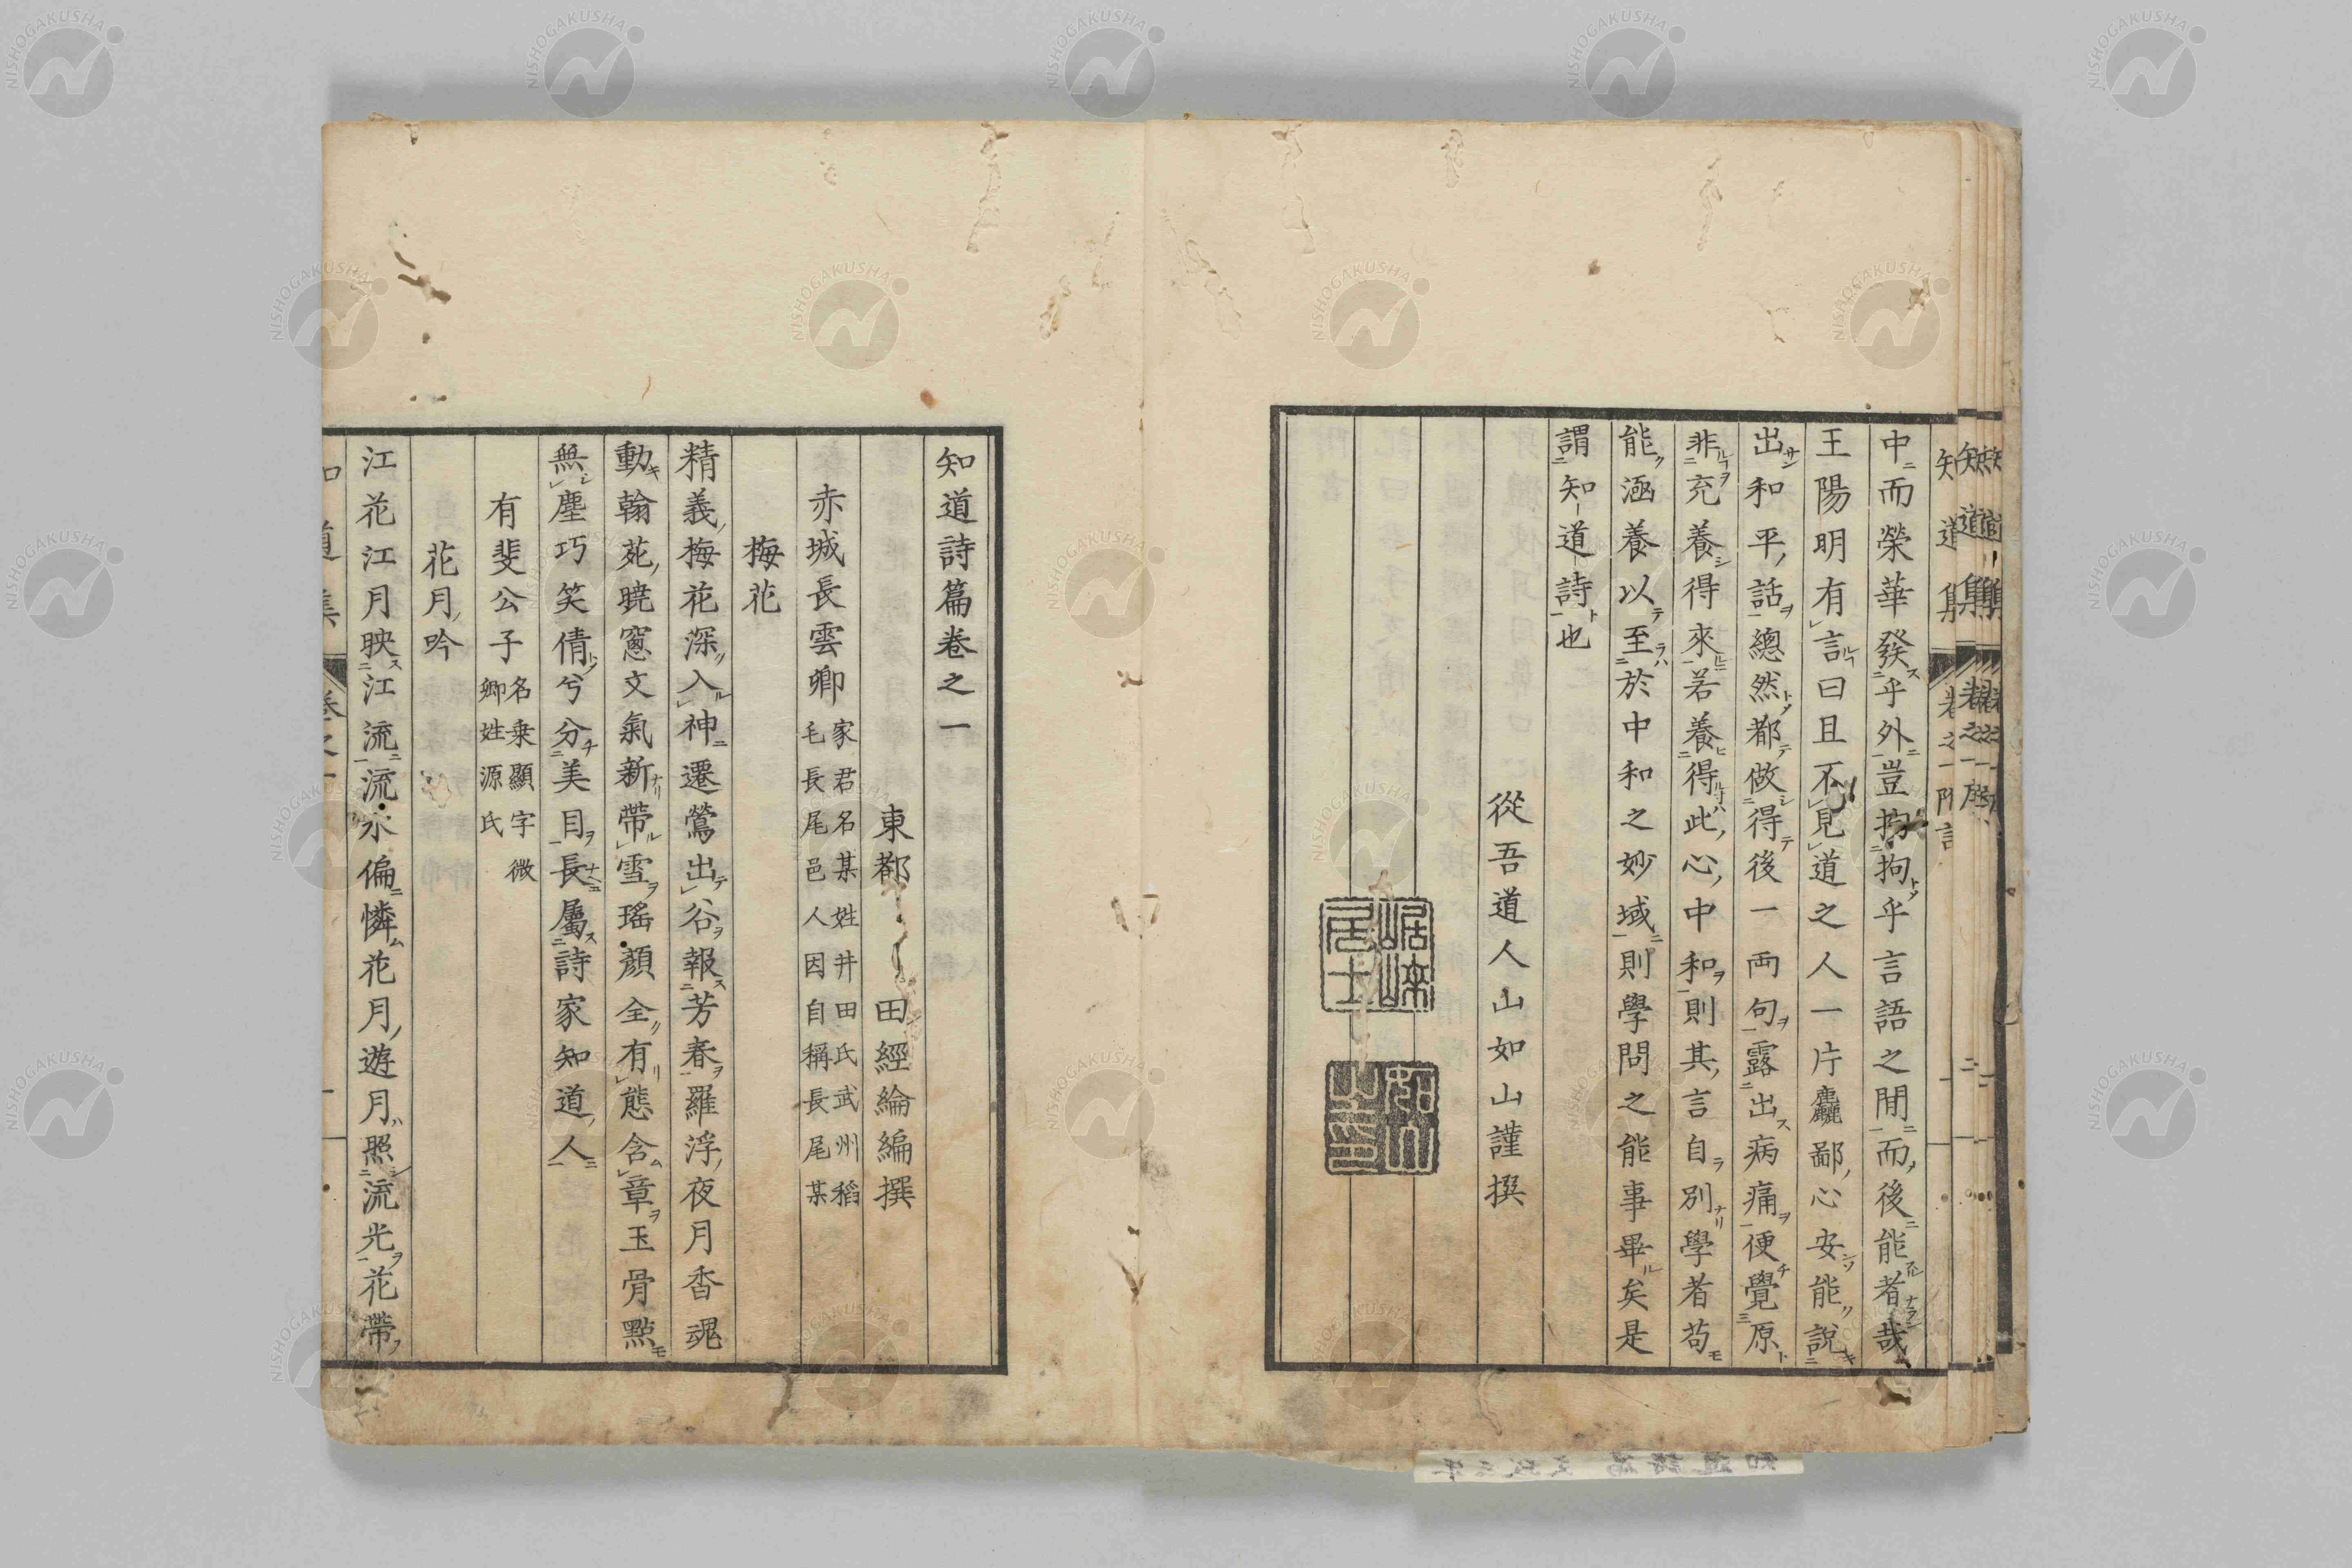 中而榮華發乎外豈拘拘乎言語之間而後能者哉
王陽明有言曰且不見道之人一片麤鄙心安能說
出和平話總然都做得後一両句露出病痛便覺原
非充養得來若養得此心中和則其言自別學者苟
能涵養以至於中和之妙域則學問之能事畢矣是
謂知道詩也
從吾道人山如山謹撰
知道詩篇卷之一
東都 田經綸編撰
赤城長雲卿 家君名某姓井田氏武州稻
毛長尾邑人因自稱長尾某
梅花
精義梅花深入神遷鶯出谷報芳春羅浮夜月香魂
動翰苑曉窻文氣新帶雪瑤顏全有態含章玉骨點
無塵巧笑倩兮分美目長屬詩家知道人
有斐公子 名乗顯字微
卿姓源氏
花月吟
江花江月映江流流水偏憐花月遊月照流光花帶
NISHOGAKUSHA